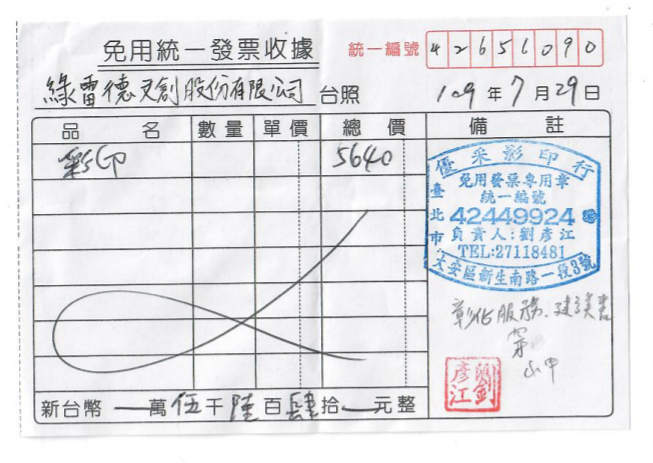 免用統一發票收據
統一編號 42651090
綠雷德文創股份有限公司 台照
109年7月29日
品名 數量 單價 總價 備註
彩印 5640
優采影印行
免用發票專用章
統一編號
臺北市
42449924
負責人:劉彥江
TEL:27118481
大安區新生南路一段3號
彰化服務.建議書
劉彥江
新台幣 一萬伍千陸百肆拾一元整